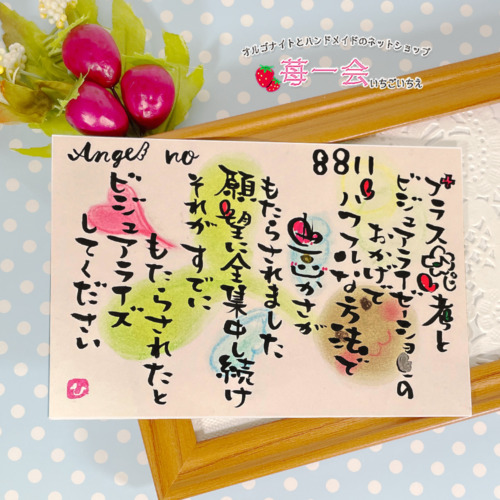 オルゴナイトとハンドメイドのネットショップ
苺一会
いちごいちえ
Angel no
8811
プラス思考と
ビジュアライゼーションの
おかげで
パワフルな方法で
豊かさが
もたらされました
願望に全集中し続け
それがすでに
もたらされたと
ビジュアライズ
してください